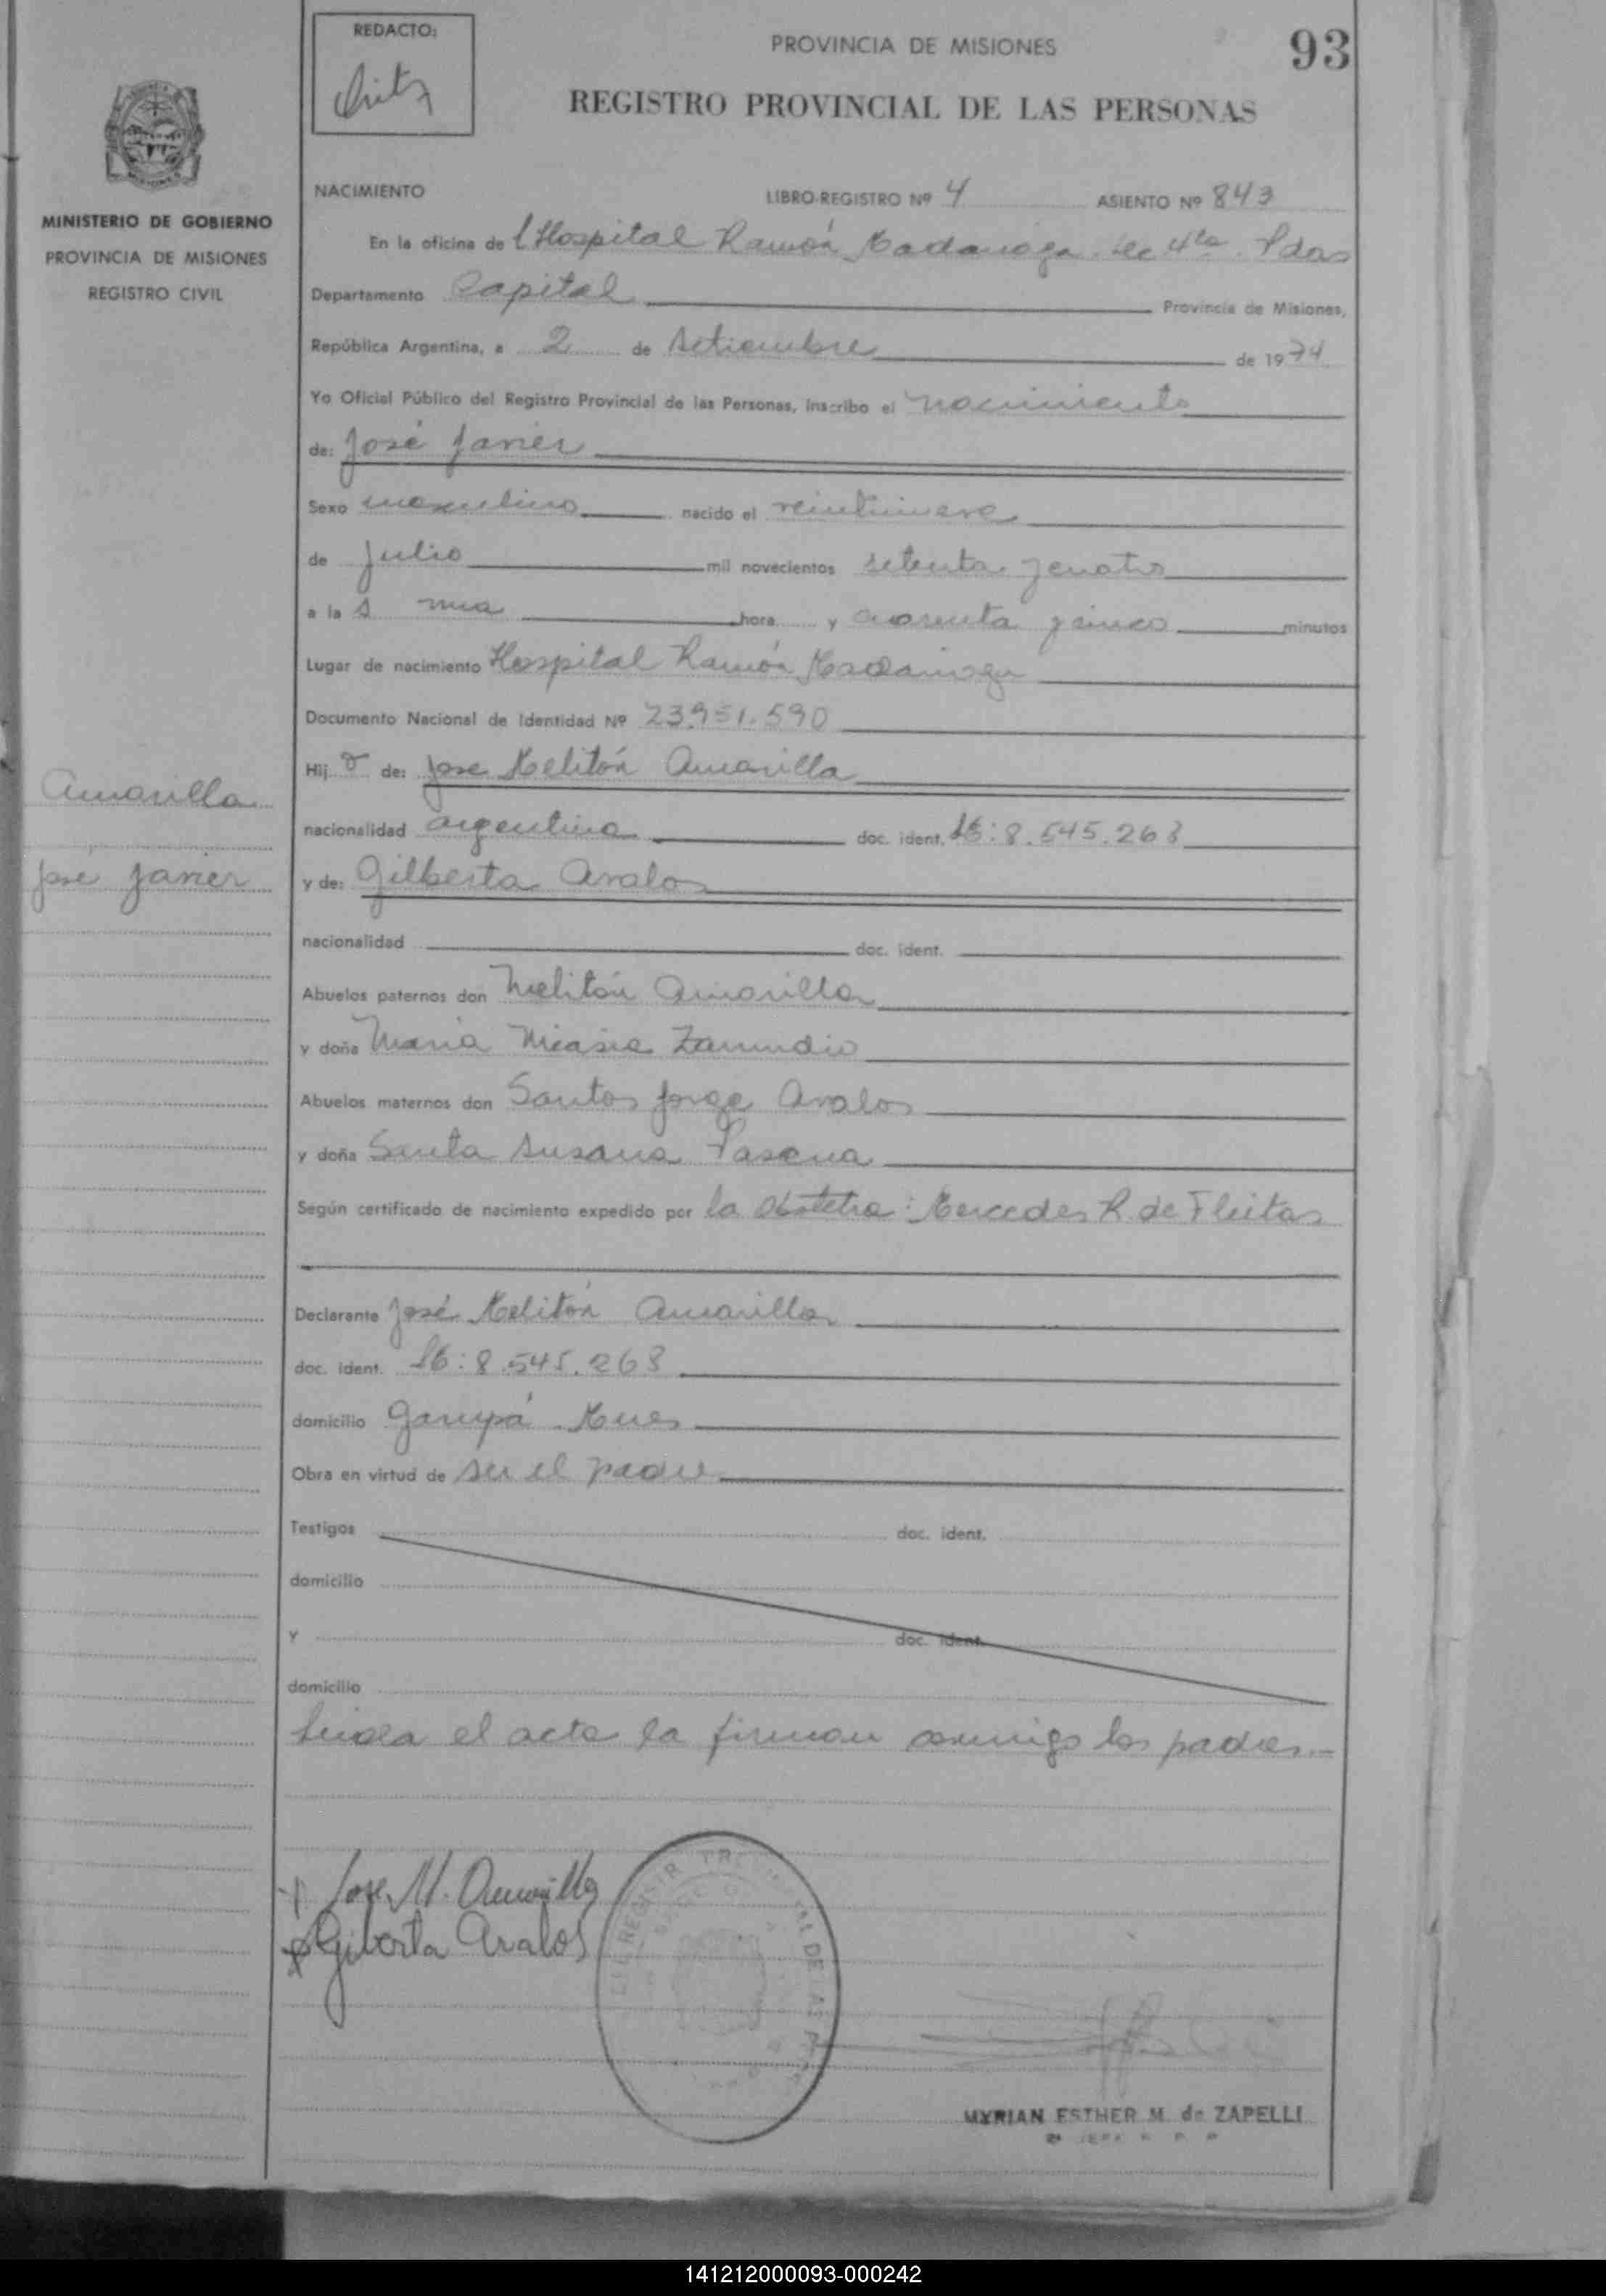 REDACTO:
PROVINCIA DE MISIONES
93
REGISTRO PROVINCIAL DE LAS PERSONAS
MINISTERIO DE GOBIERNO
PROVINCIA DE MISIONES
REGISTRO CIVIL
NACIMIENTO
LIBRO-REGISTRO Nº 4
ASIENTO Nº 843
En la oficina de l Hospital Ramón Madariaga. Sec 4ta. Pdas
Departamento Capital Provincia de Misiones,
República Argentina, a 2 de setiembre de 1974
Yo Oficial Público del Registro Provincial de las Personas, inscribo el nacimiento
de: José Javier
Sexo masculino nacido el veintinueve
de Julio mil novecientos setenta y cuatro
a la s una hora y cuarenta y cinco minutos
Lugar de nacimiento Hospital Ramón Madariaga
Documento Nacional de Identidad Nº 23.951.590
Hij o de: Jose Melitón Amarilla
Amarilla
nacionalidad argentina doc. ident. 8.545.263
José Javier
y de: Gilberta Avalos
nacionalidad doc. ident.
Abuelos paternos don Melitón Amarilla
y doña Maria Nicasia Zamudio
Abuelos maternos don Santos Jorge Avalos
y doña Susana
Según certificado de nacimiento expedido por la Obstetra: Mercedes R. de Fleitas
Declarante José Melitón Amarilla
doc. ident. 8.545.263
domicilio Garupá. Mnes
Obra en virtud de ser el padre
Testigos doc. ident.
domicilio
Y doc. ident.
domicilio
Leida el acta la firman conmigo los padres.-
Jose M. Amarilla
Gilberta Avalos
MYRIAN ESTHER M. de ZAPELLI
141212000093-000242